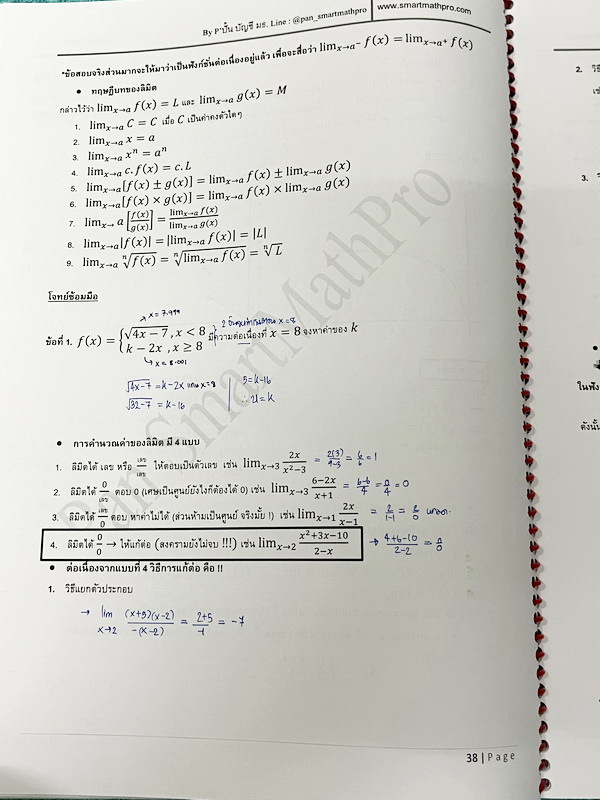 By P'ปั้น บัญชี มธ. Line : @pan_smartmathpro | www.smartmathpro.com
*ข้อสอบจริงส่วนมากจะให้มาว่าเป็นฟังก์ชั่นต่อเนื่องอยู่แล้ว เพื่อจะสื่อว่า lim x→a⁻ f(x) = lim x→a⁺ f(x)
• ทฤษฎีบทของลิมิต
กล่าวไว้ว่า lim x→a f(x) = L และ lim x→a g(x) = M
1. lim x→a C = C เมื่อ C เป็นค่าคงตัวใดๆ
2. lim x→a x = a
3. lim x→a xⁿ = aⁿ
4. lim x→a c.f(x) = c.L
5. lim x→a [f(x) ± g(x)] = lim x→a f(x) ± lim x→a g(x)
6. lim x→a [f(x) × g(x)] = lim x→a f(x) × lim x→a g(x)
7. lim x→ a [f(x)/g(x)] = lim x→a f(x) / lim x→a g(x)
8. lim x→a |f(x)| = |lim x→a f(x)| = |L|
9. lim x→a ⁿ√f(x) = ⁿ√lim x→a f(x) = ⁿ√L
โจทย์ซ้อมมือ
x = 7.999
ข้อที่ 1. f(x) = { √4x − 7 , x < 8
k − 2x , x ≥ 8 มีความต่อเนื่องที่ x = 8 จงหาค่าของ k
x = 8.001
√4x-7 = k-2x แทน x=8 | 5 = k-16
√32-7 = k-16 | ∴ 21 = k
• การคำนวณค่าของลิมิต มี 4 แบบ
1. ลิมิตได้ เลข หรือ เลข/เลข ให้ตอบเป็นตัวเลข เช่น lim x→3 2x/(x²−3) = 2(3)/(9-3) = 6/6 = 1
2. ลิมิตได้ 0/เลข ตอบ 0 (เศษเป็นศูนย์ยังไงก็ต้องได้ 0) เช่น lim x→3 (6−2x)/(x+1) = (6-6)/4 = 0/4 = 0
3. ลิมิตได้ เลข/0 ตอบ หาค่าไม่ได้ (ส่วนห้ามเป็นศูนย์ จริงมั้ย !) เช่น lim x→1 2x/(x−1) = 2/(1-1) = 2/0
4. ลิมิตได้ 0/0 → ให้แก้ต่อ (สงครามยังไม่จบ !!!) เช่น lim x→2 (x²+3x−10)/(2−x) → (4+6-10)/(2-2) = 0/0
• ต่อเนื่องจากแบบที่ 4 วิธีการแก้ต่อ คือ !!
1. วิธีแยกตัวประกอบ
→ lim x→2 (x+5)(x-2)/-(x-2) = (2+5)/-1 = -7
38 | Page
Pan SmartMathPro
2. วิธี
เช่
3.
ในฟัง
ดังนั้